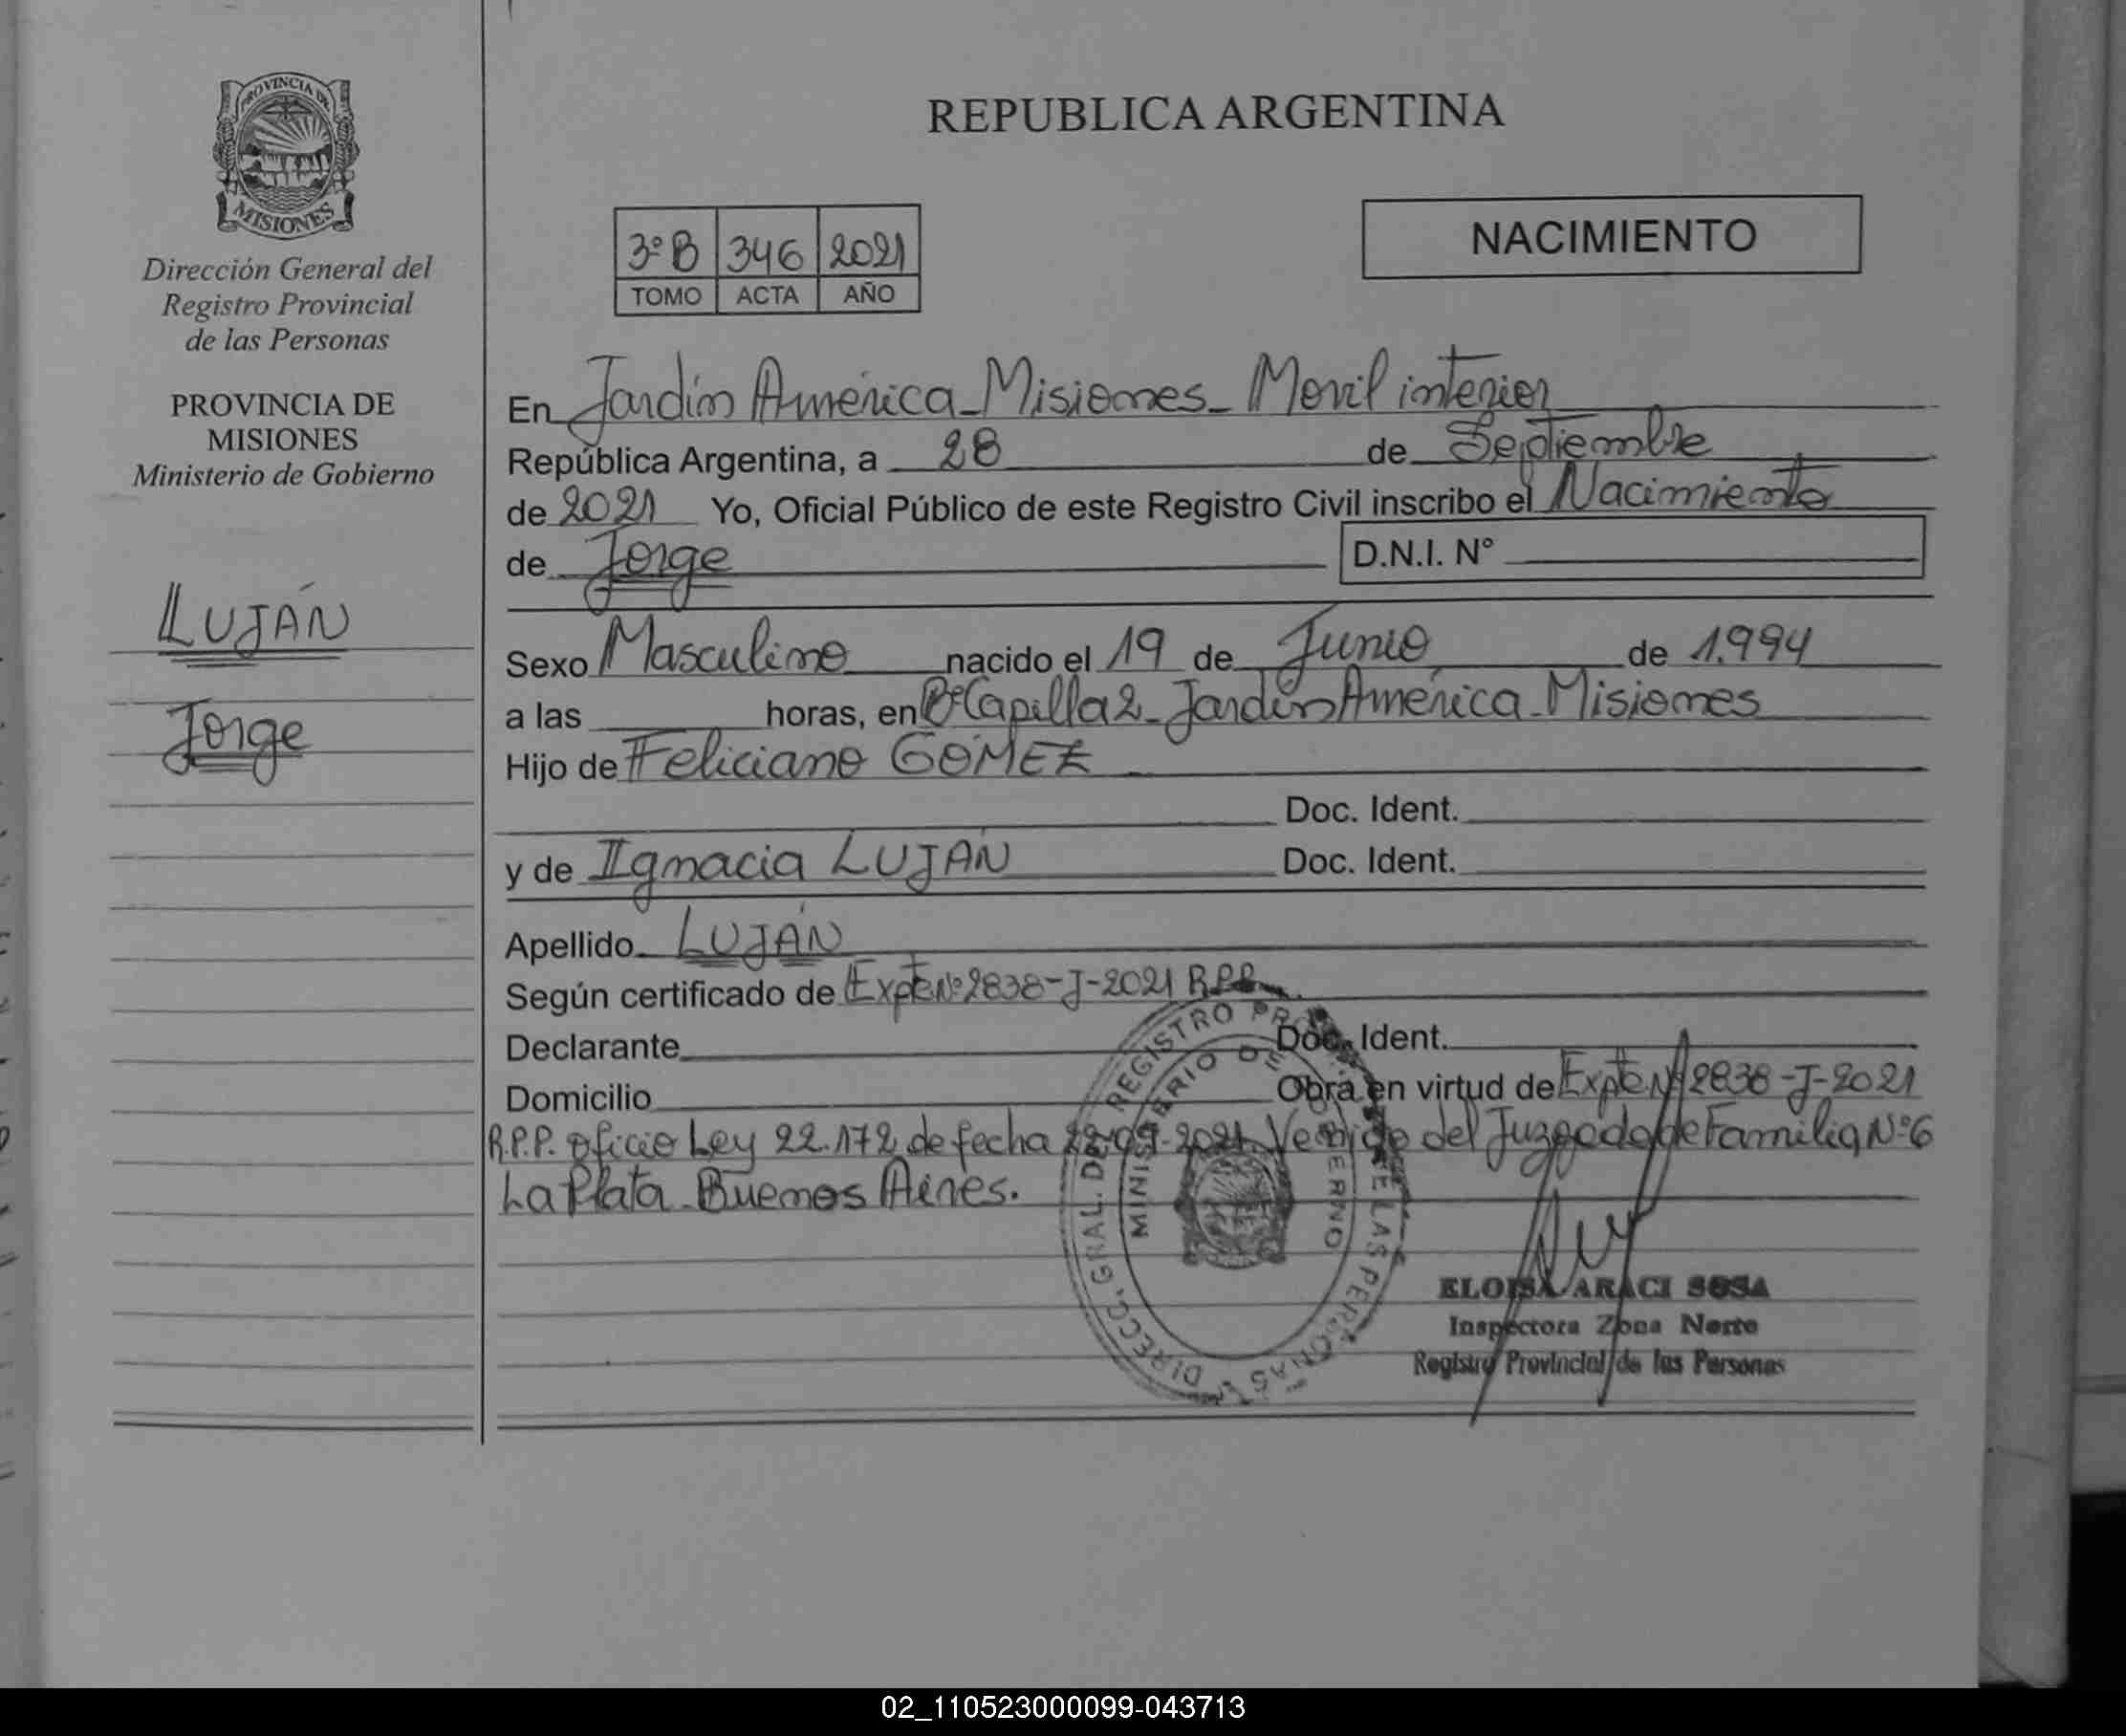 PROVINCIA DE
MISIONES
Dirección General del
Registro Provincial
de las Personas
PROVINCIA DE
MISIONES
Ministerio de Gobierno
LUJÁN
Jorge
REPUBLICA ARGENTINA
3º B 346 2021
TOMO ACTA AÑO
NACIMIENTO
En Jardín América - Misiones - Movil interior
República Argentina, a 28 de Septiembre
de 2021 Yo, Oficial Público de este Registro Civil inscribo el Nacimiento
de Jorge D.N.I. N°
Sexo Masculino nacido el 19 de Junio de 1.994
a las horas, en Bº Capilla 2 - Jardín América - Misiones
Hijo de Feliciano GÓMEZ
Doc. Ident.
y de Ignacia LUJÁN Doc. Ident.
Apellido LUJÁN
Según certificado de Expte Nº 2838-J-2021 R.P.P.
Declarante Doc. Ident.
Domicilio Obra en virtud de Expte Nº 2838-J-2021
R.P.P. oficio Ley 22.172 de fecha 22-09-2021 Venido del Juzgado de Familia Nº 6
La Plata - Buenos Aires.
DIRECC. GRAL. DEL REGISTRO PROV. DE LAS PERSONAS
MINISTERIO DE GOBIERNO
ELOISA ARACI SOSA
Inspectora Zona Norte
Registro Provincial de las Personas
02_110523000099-043713